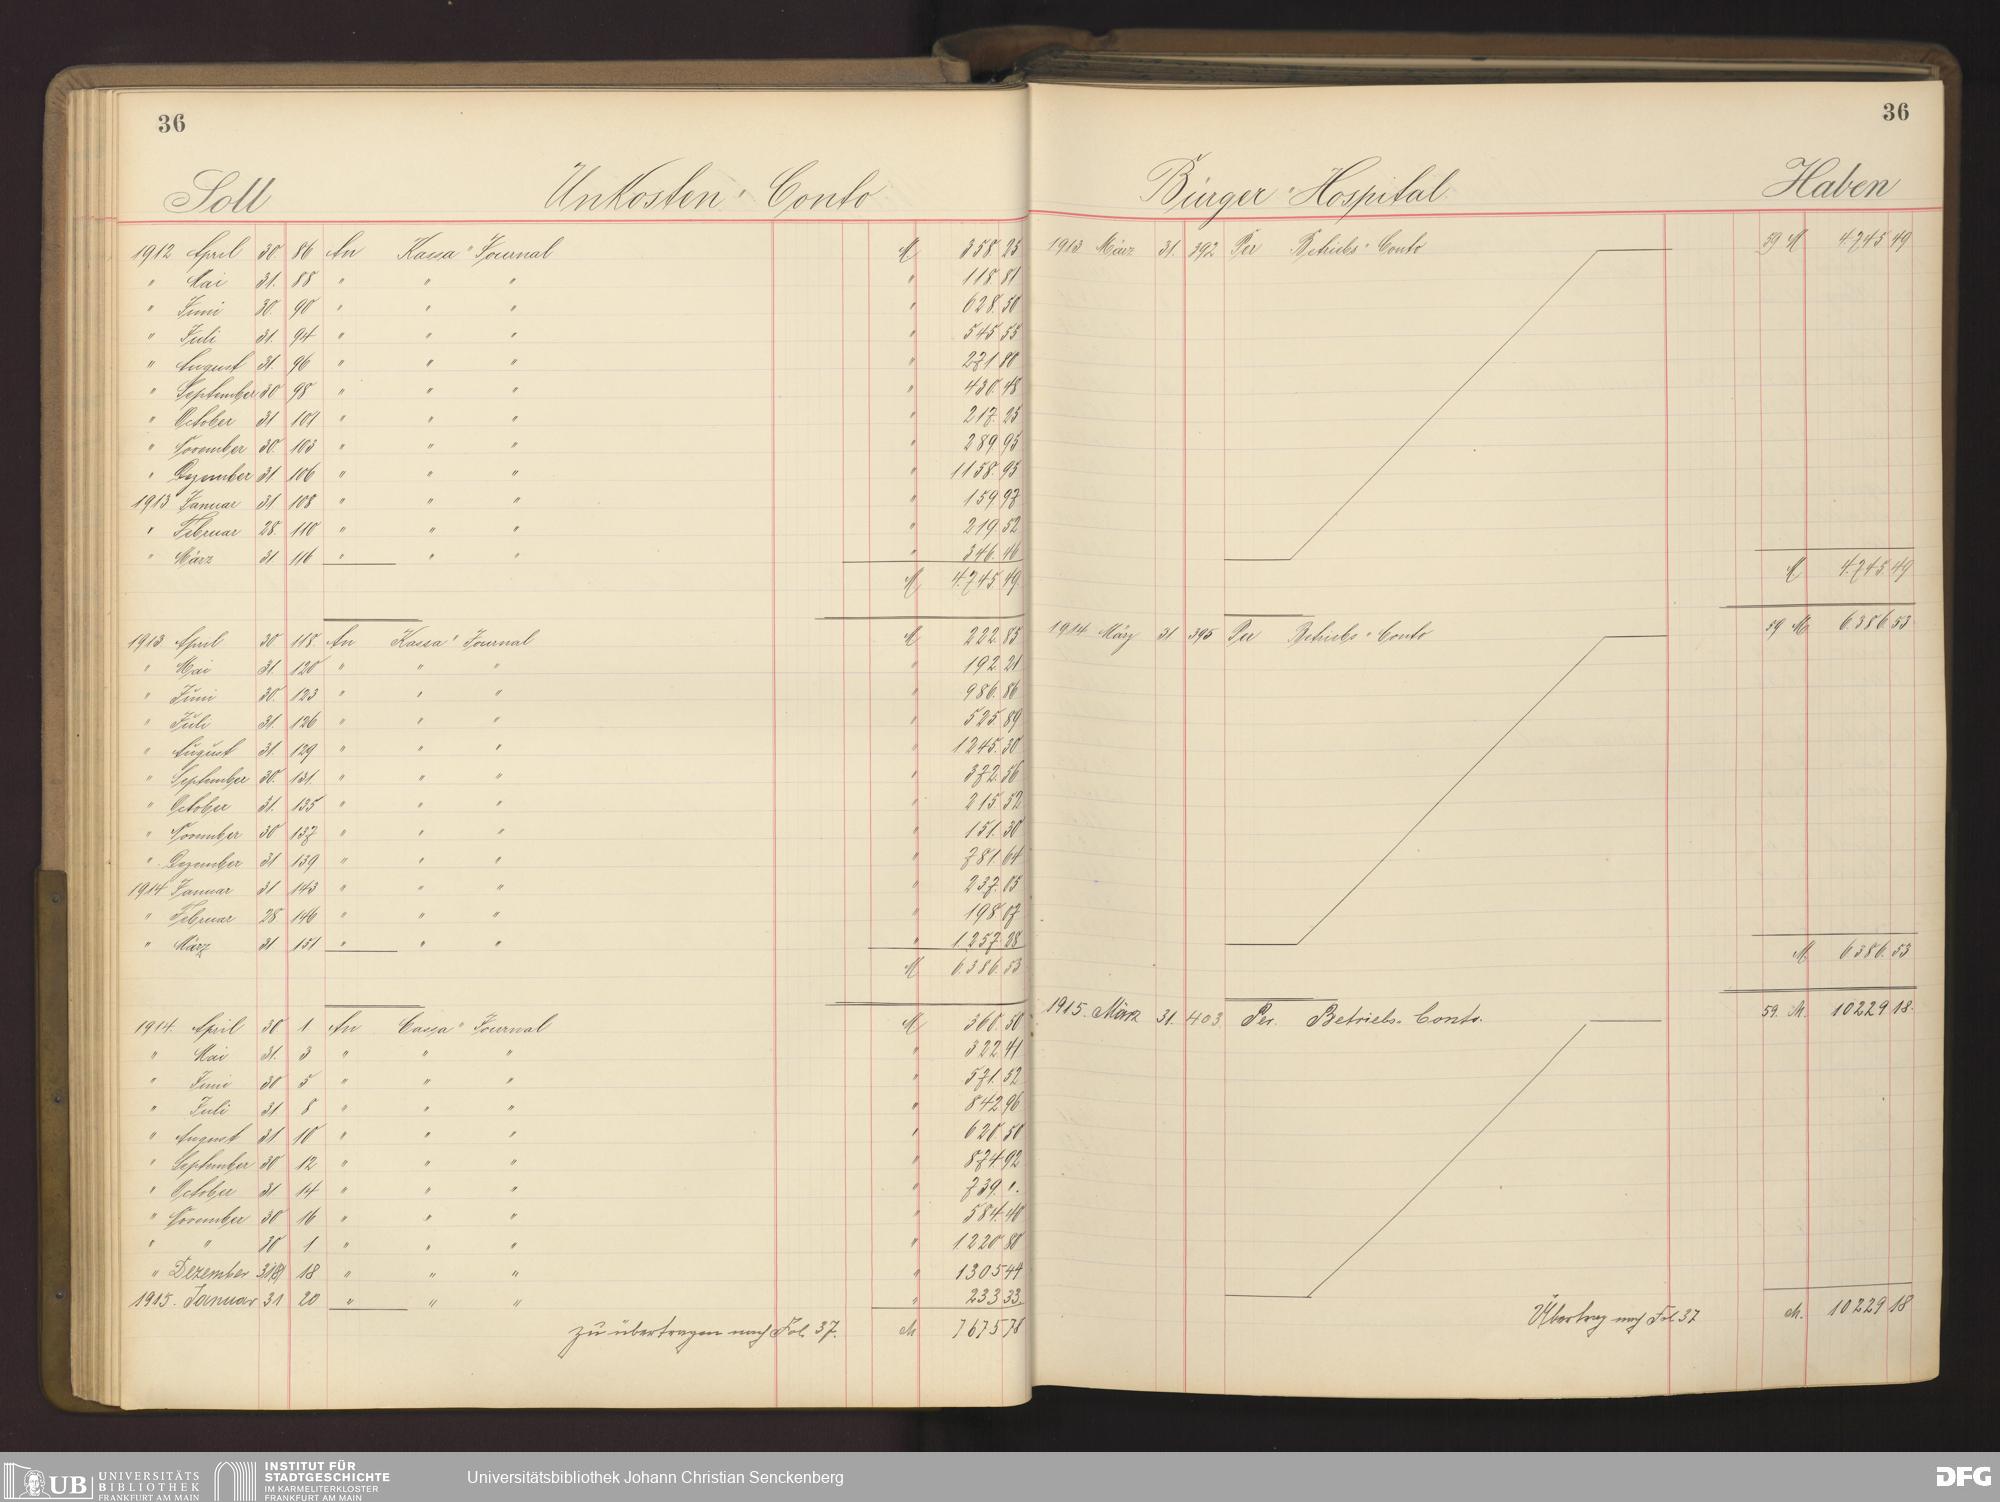 36
Soll Unkosten Conto
1912 April 30. 86 An Kassa Journal M 358.25
" Mai 31. 88 " " " " 118.81
" Juni 30. 90 " " " " 628.50
" Juli 31. 94 " " " " 545.55
" August 31. 96 " " " " 271.80
" September 30 98 " " " " 430.48
" October 31 101 " " " " 217.25
" November 30. 103 " " " " 289.95
" Dezember 31 106 " " " " 1158.95
1913 Januar 31 108 " " " " 159.97
" Februar 28. 110 " " " " 219.52
" März 31 116 " " " " 346.46
M 4.745.49
1913 April 30 118 An Kassa Journal M 222.85
" Mai 31. 120 " " " " 192.21
" Juni 30. 123 " " " " 986.86
" Juli 31. 126 " " " " 525.89
" August 31. 129 " " " " 1245.30
" September 30. 131 " " " " 372.56
" October 31. 135 " " " " 215.52
" November 30 137 " " " " 151.30
" Dezember 31 139 " " " " 781.64
1914 Januar 31 143 " " " " 237.05
" Februar 28 146 " " " " 198.07
" März 31 151 " " " " 1.257.28
M 6.386.53
1914. April 30 1 An Cassa Journal M 360.50
" Mai 31. 3 " " " " 322.41
" Juni 30 5 " " " " 571.52
" Juli 31 8 " " " " 842.96
" August 31 10 " " " " 620.50
" September 30 12 " " " " 874.92
" October 31 14 " " " " 739.".
" November 30 16 " " " " 584.40
" " 30 1 " " " " 1220.80
" Dezember 31 18 " " " " 1305.44
1915. Januar 31 20 " " " " 233.33.
zu übertragen nach Fol. 37. M 7675 78
36
Bürger Hospital Haben
1913 März 31. 392 Per Betriebs Conto 59 M 4.745.49
M 4.745.49
1914 März 31 395 Per Betriebs Conto 59 M 6386.53
M 6386.53
1915. März 31. 403. Per. Betriebs Conto. 59. M. 10229 18.
Übertrag nach Fol 37 M. 10229 18
UB UNIVERSITÄTS
BIBLIOTHEK
FRANKFURT AM MAIN
INSTITUT FÜR
STADTGESCHICHTE
IM KARMELITERKLOSTER
FRANKFURT AM MAIN
Universitätsbibliothek Johann Christian Senckenberg
DFG